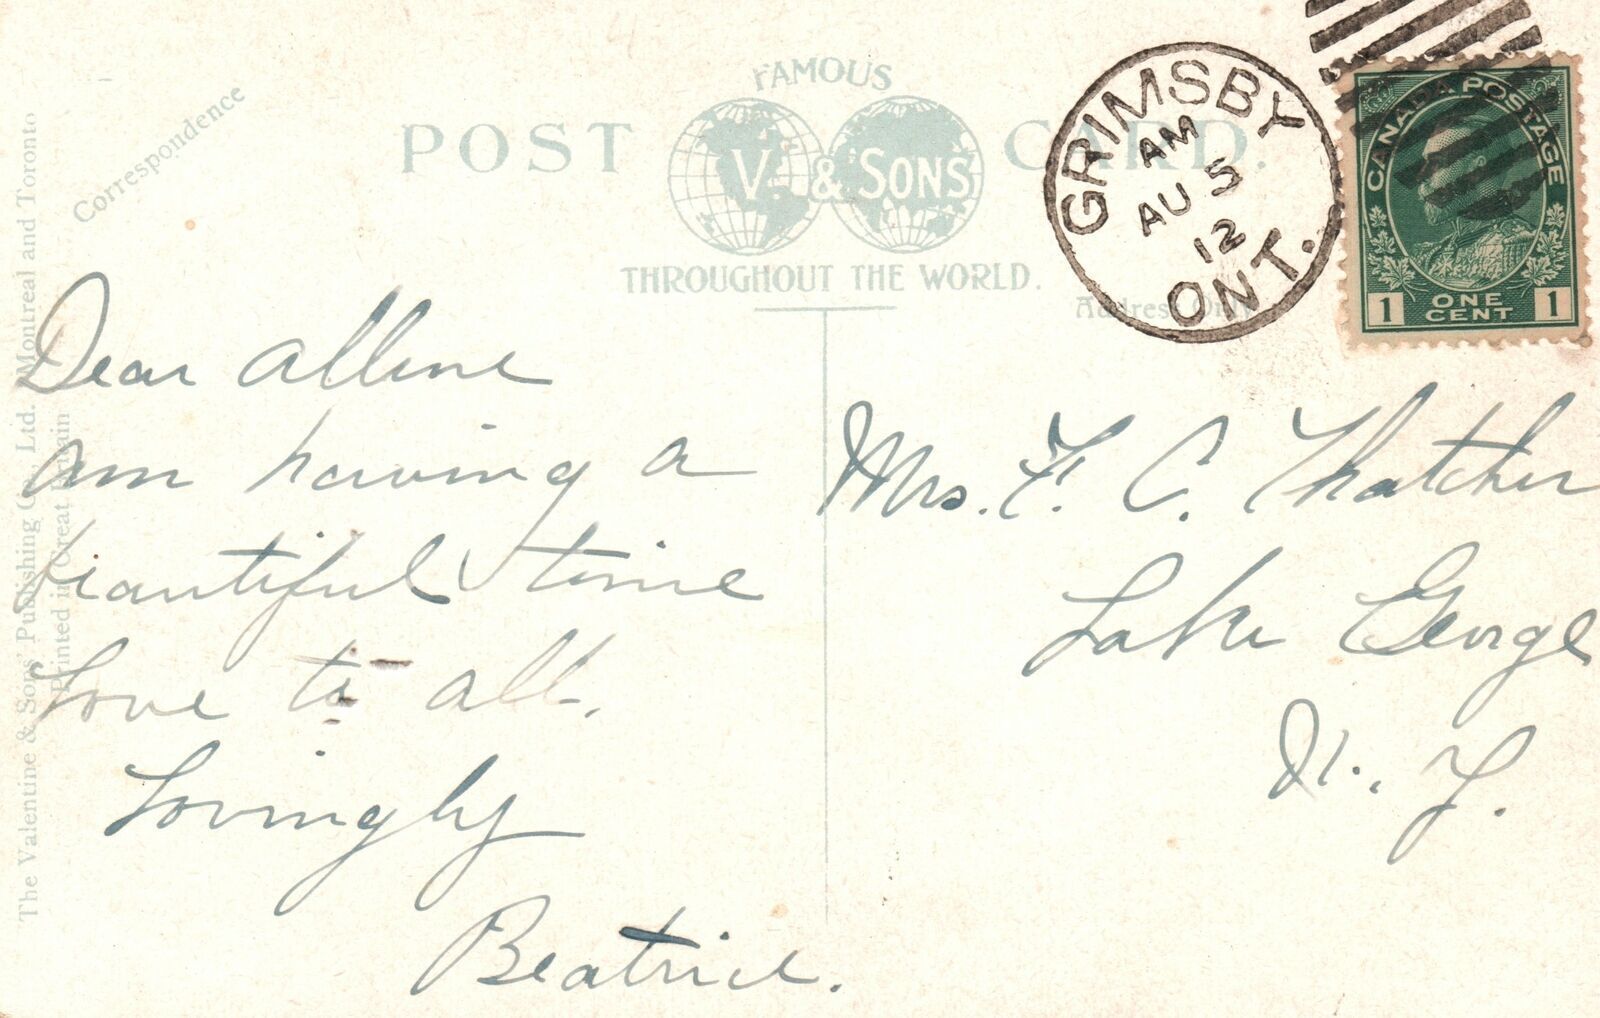 FAMOUS
POST CARD.
V. & SONS
THROUGHOUT THE WORLD.
Correspondence
Address Only
The Valentine & Sons' Publishing Co., Ltd. Montreal and Toronto
Printed in Great Britain
GRIMSBY
AM
AU 5
12
ONT.
CANADA POSTAGE
1 ONE CENT 1
Dear Allene
am having a
beautiful time
Love to all.
Lovingly
Beatrice.
Mrs. F. C. Thatcher
Lake George
N. Y.